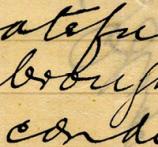 ateful
brough
conde